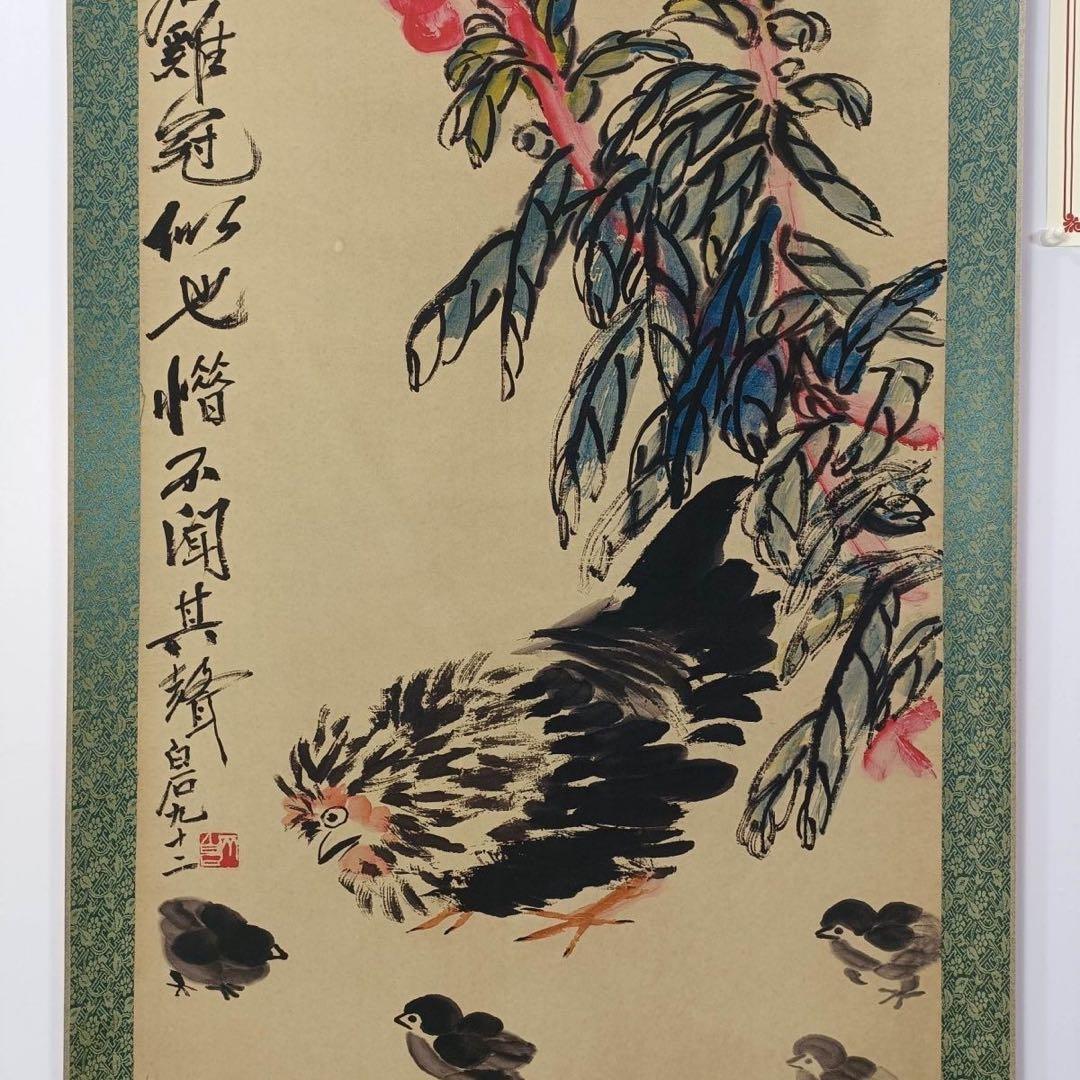 雞冠似也惜不聞其聲
白石九十二